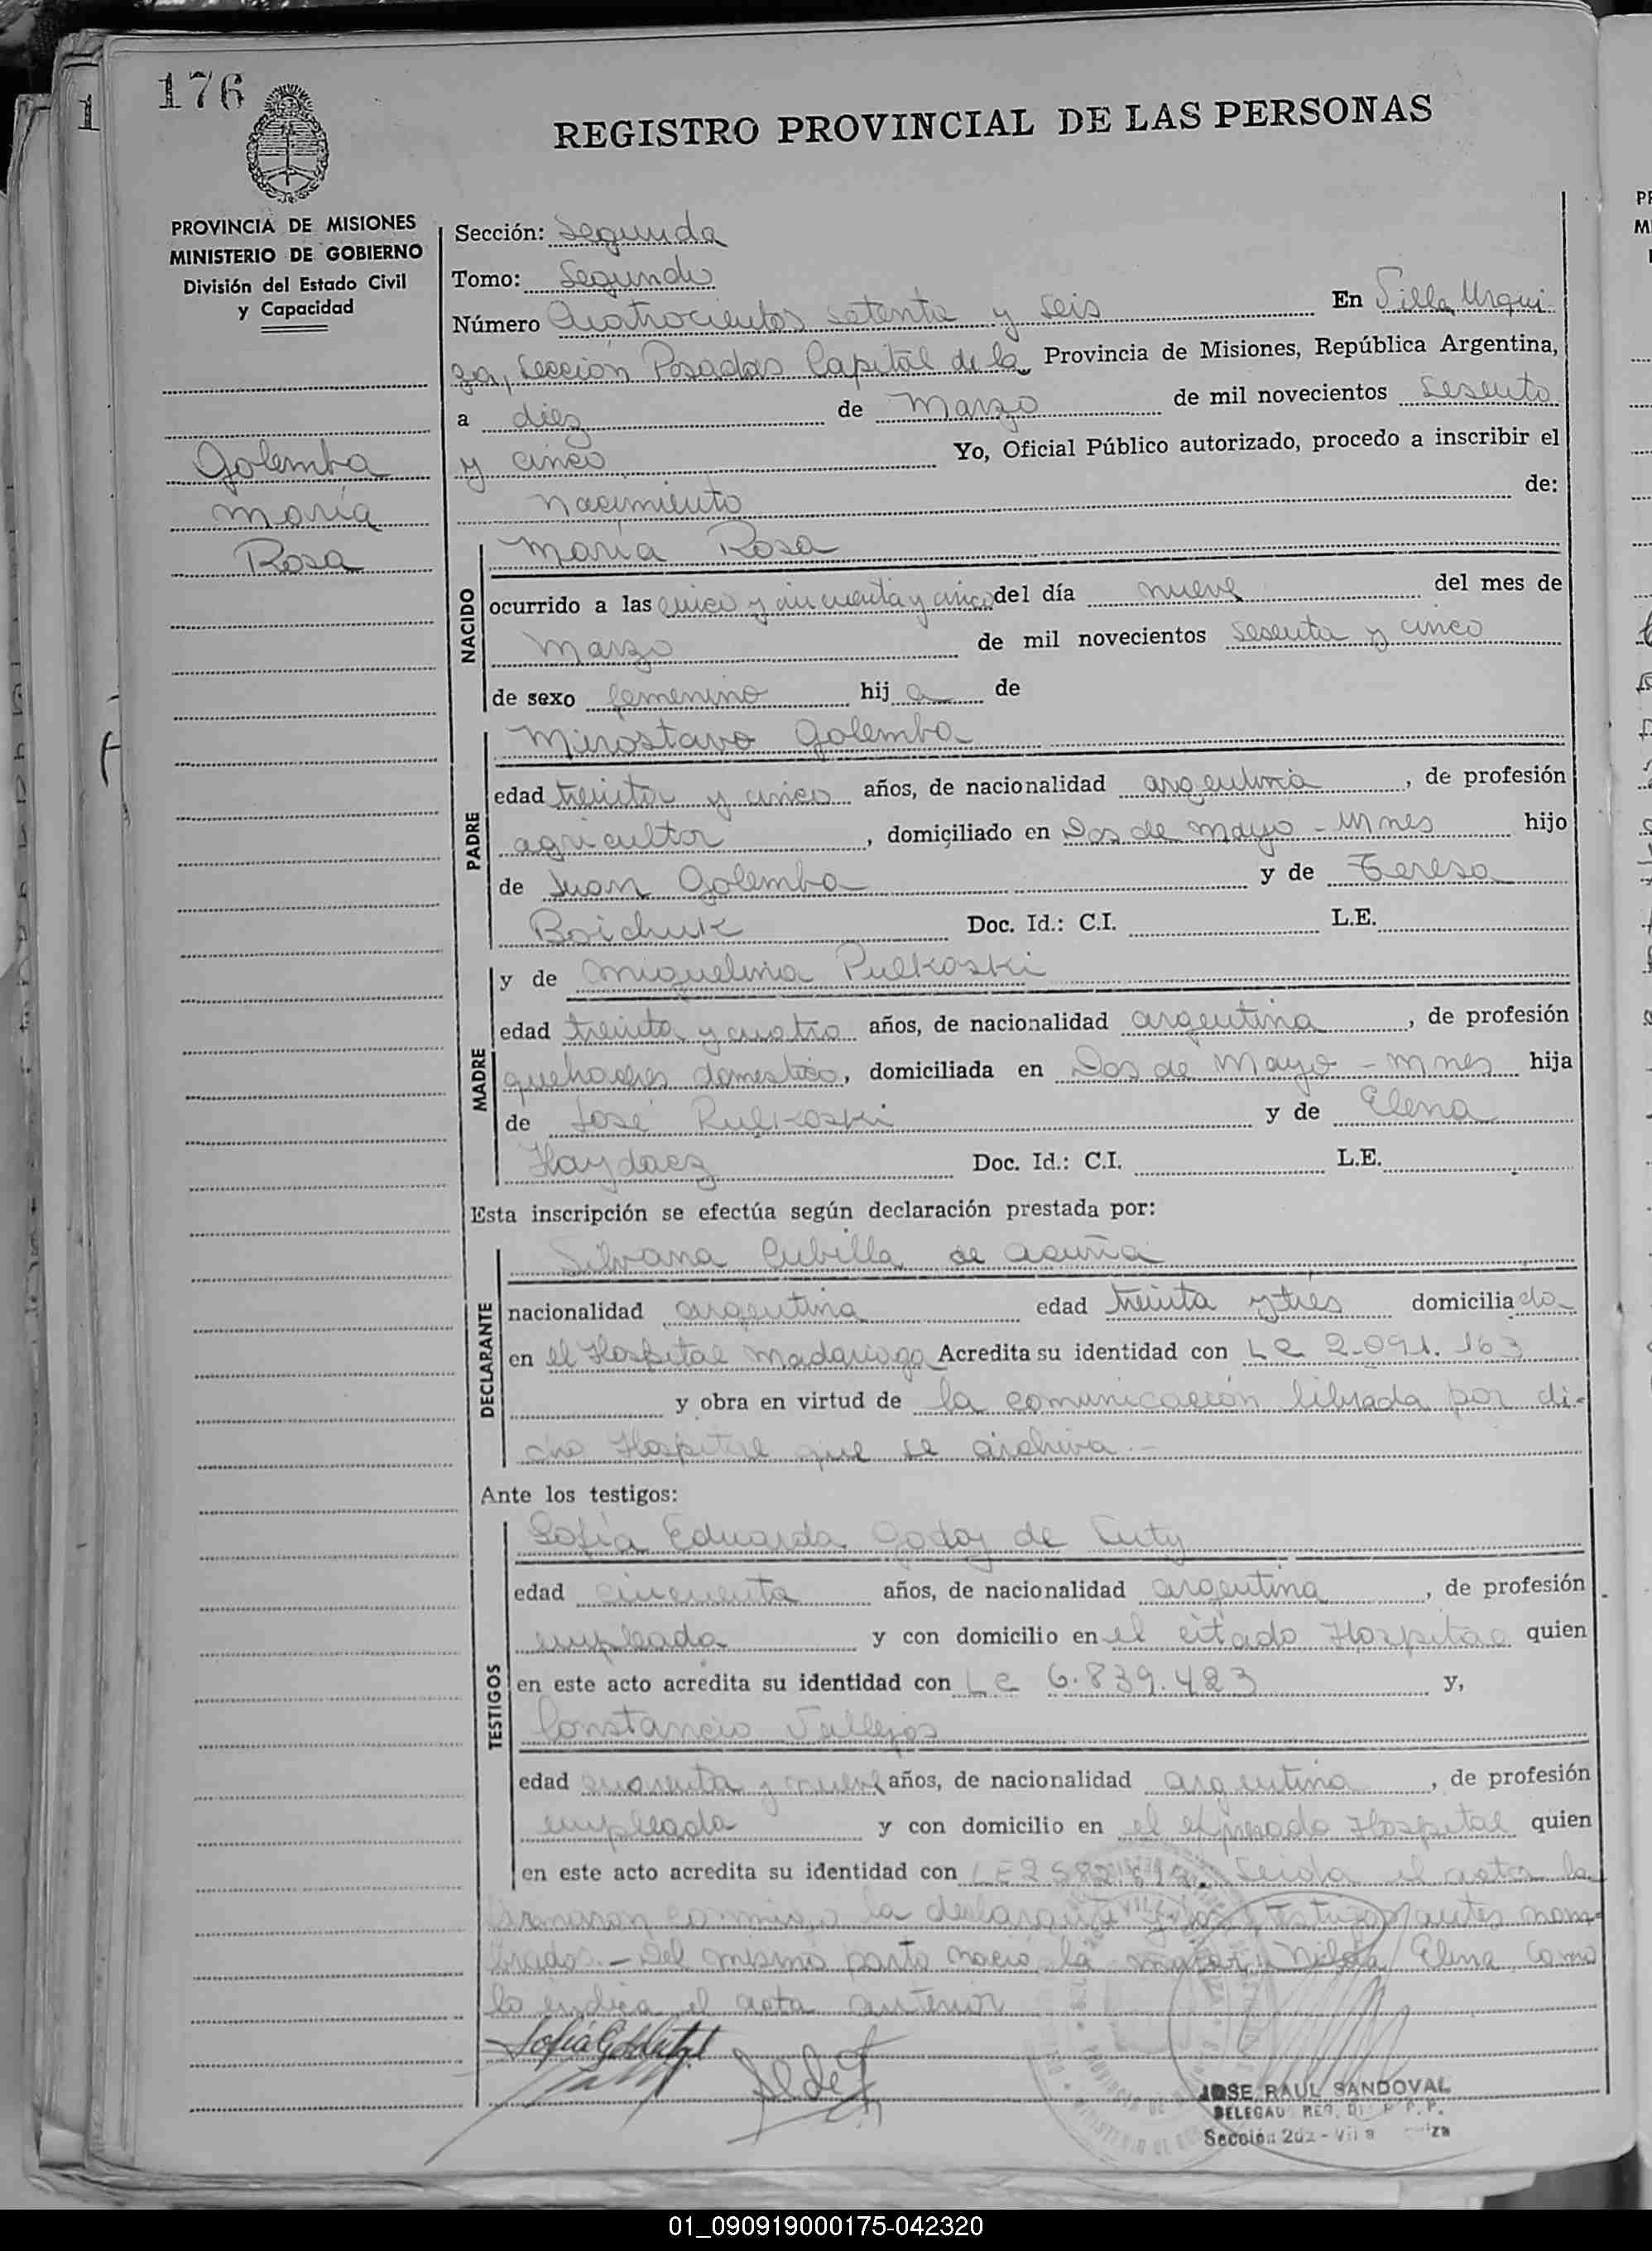 176
1
REGISTRO PROVINCIAL DE LAS PERSONAS
PROVINCIA DE MISIONES
MINISTERIO DE GOBIERNO
División del Estado Civil
y Capacidad
Golemba
María
Rosa
Sección: Segunda
Tomo: Segundo
Número Cuatrocientos setenta y seis En Villa Urqui
za, Sección Posadas Capital de la Provincia de Misiones, República Argentina,
a diez de Marzo de mil novecientos sesenta
y cinco Yo, Oficial Público autorizado, procedo a inscribir el
nacimiento de:
NACIDO
María Rosa
ocurrido a las cinco y cincuenta y cinco del día nueve del mes de
Marzo de mil novecientos sesenta y cinco
de sexo femenino hij a de
PADRE
Mirostavo Golemba
edad treinta y cinco años, de nacionalidad argentina, de profesión
agricultor, domiciliado en Dos de Mayo - Mnes hijo
de Juan Golemba y de Teresa
Boichuk Doc. Id.: C.I. L.E.
MADRE
y de Miguelina Pulkoski
edad treinta y cuatro años, de nacionalidad argentina, de profesión
quehaceres domestico, domiciliada en Dos de Mayo - Mnes hija
de José Pulkoski y de Elena
Haydacz Doc. Id.: C.I. L.E.
Esta inscripción se efectúa según declaración prestada por:
DECLARANTE
Silvana Cubilla de Acuña
nacionalidad argentina edad treinta y tres domicilia da
en el Hospital Madariaga Acredita su identidad con LC 2.091.163
y obra en virtud de la comunicación librada por di-
cho Hospital que se archiva.-
Ante los testigos:
TESTIGOS
Sofía Eduarda Godoy de
edad cincuenta años, de nacionalidad argentina, de profesión
empleada y con domicilio en el citado Hospital quien
en este acto acredita su identidad con LC 6.839.423 y,
Constancio Vallejos
edad cuarenta y nueve años, de nacionalidad argentina, de profesión
empleada y con domicilio en el expresado Hospital quien
en este acto acredita su identidad con LE Leida el acta la
firmaron conmigo la declarante y los testigos antes nom-
brados.- Del mismo parto nació la Elena como
lo indica el acta anterior
JOSE RAUL SANDOVAL
Sección 2da - Villa
01_090919000175-042320